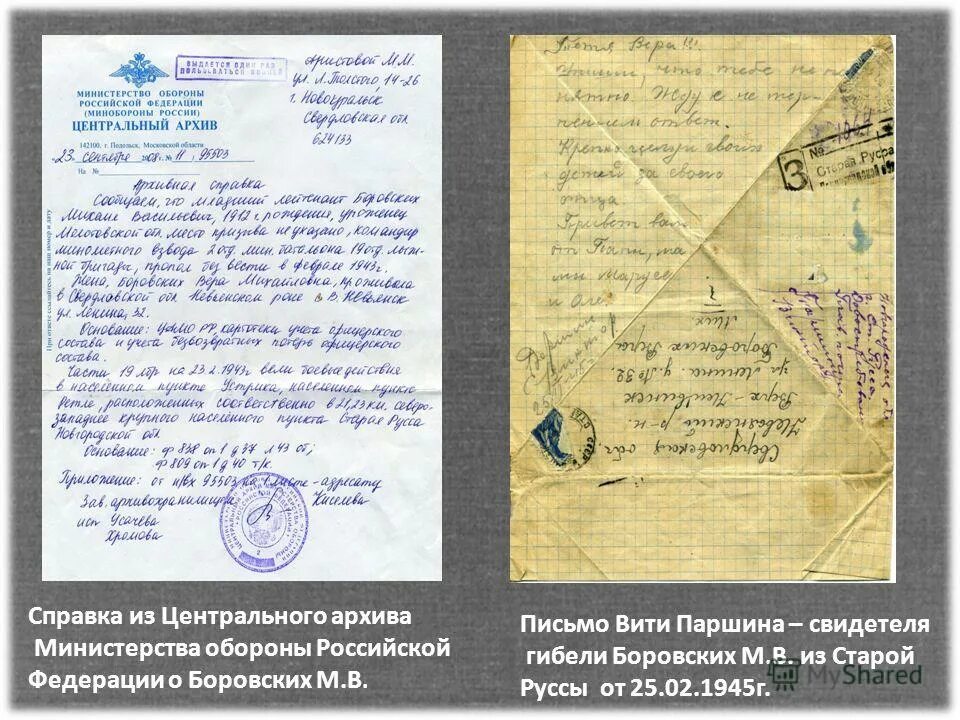 ВЫДАЕТСЯ ОДИН РАЗ
МИНИСТЕРСТВО ОБОРОНЫ
РОССИЙСКОЙ ФЕДЕРАЦИИ
(МИНОБОРОНЫ РОССИИ)
ЦЕНТРАЛЬНЫЙ АРХИВ
142100, г. Подольск, Московской области
23 сентября № 11/95503
На №
Аристовой М.М.
ул. Л. Толстого, 14-26
г. Новоуральск
Свердловская обл
624133
Архивная справка
Сообщаем, что младший лейтенант Боровских
Михаил Васильевич, 1912 г. рождения, уроженец
Молотовской обл. место призыва не указано, командир
минометного взвода 2 отд. мин. батальона 19 отд. лыж-
ной бригады, пропал без вести в феврале 1943 г.
Жена, Боровских Вера Михайловна, проживала
в Свердловской обл. Невьянском р-не В.
ул. Ленина, 32.
Основание: ЦАМО РФ, картотеки учета офицерского
состава и учета безвозвратных потерь офицерского
состава.
Части 19 лбр на 23.2.1943 г. вели боевые действия
в населенном пункте Устрика, населенном пункте
Ретле, расположенных соответственно в 21,23 км. северо-
западнее крупного населенного пункта Старая Русса
Новгородской обл.
Основание: ф 838 оп 1 д 37 л 43 об;
ф 809 оп 1 д 40 т/к.
Приложение: от н/вх 95503 на 1 листе - адресату
Зав. архивохранилища Киселева
исп Усачева
Хромова
Тётя Вера!!!
что тебе не по
нятно. Жду с не тер-
пением ответ.
Крепко целуй своих
детей за своего
отца.
Привет вам
от Папи, ма
мы Маруси
и
З
№
Старая Русса
Свердловская обл.
Невьянский р-н.
ул. Ленина. д № 32.
Боровских Вера
Мих.
Справка из Центрального архива
Министерства обороны Российской
Федерации о Боровских М.В.
Письмо Вити Паршина – свидетеля
гибели Боровских М.В. из Старой
Руссы от 25.02.1945г.
MyShared